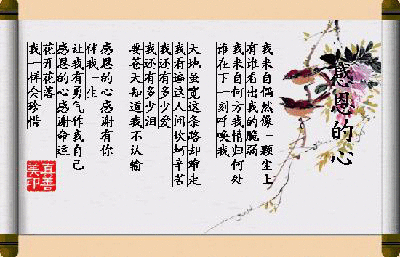 感恩的心
我来自偶然像一颗尘土
有谁看出我的脆弱
我来自何方我情归何处
谁在下一刻呼唤我
天地虽宽这条路却难走
我看遍这人间坎坷辛苦
我还有多少爱
我还有多少泪
要苍天知道我不认输
感恩的心感谢有你
伴我一生
让我有勇气作我自己
感恩的心感谢命运
花开花落
我一样会珍惜
真善
美印